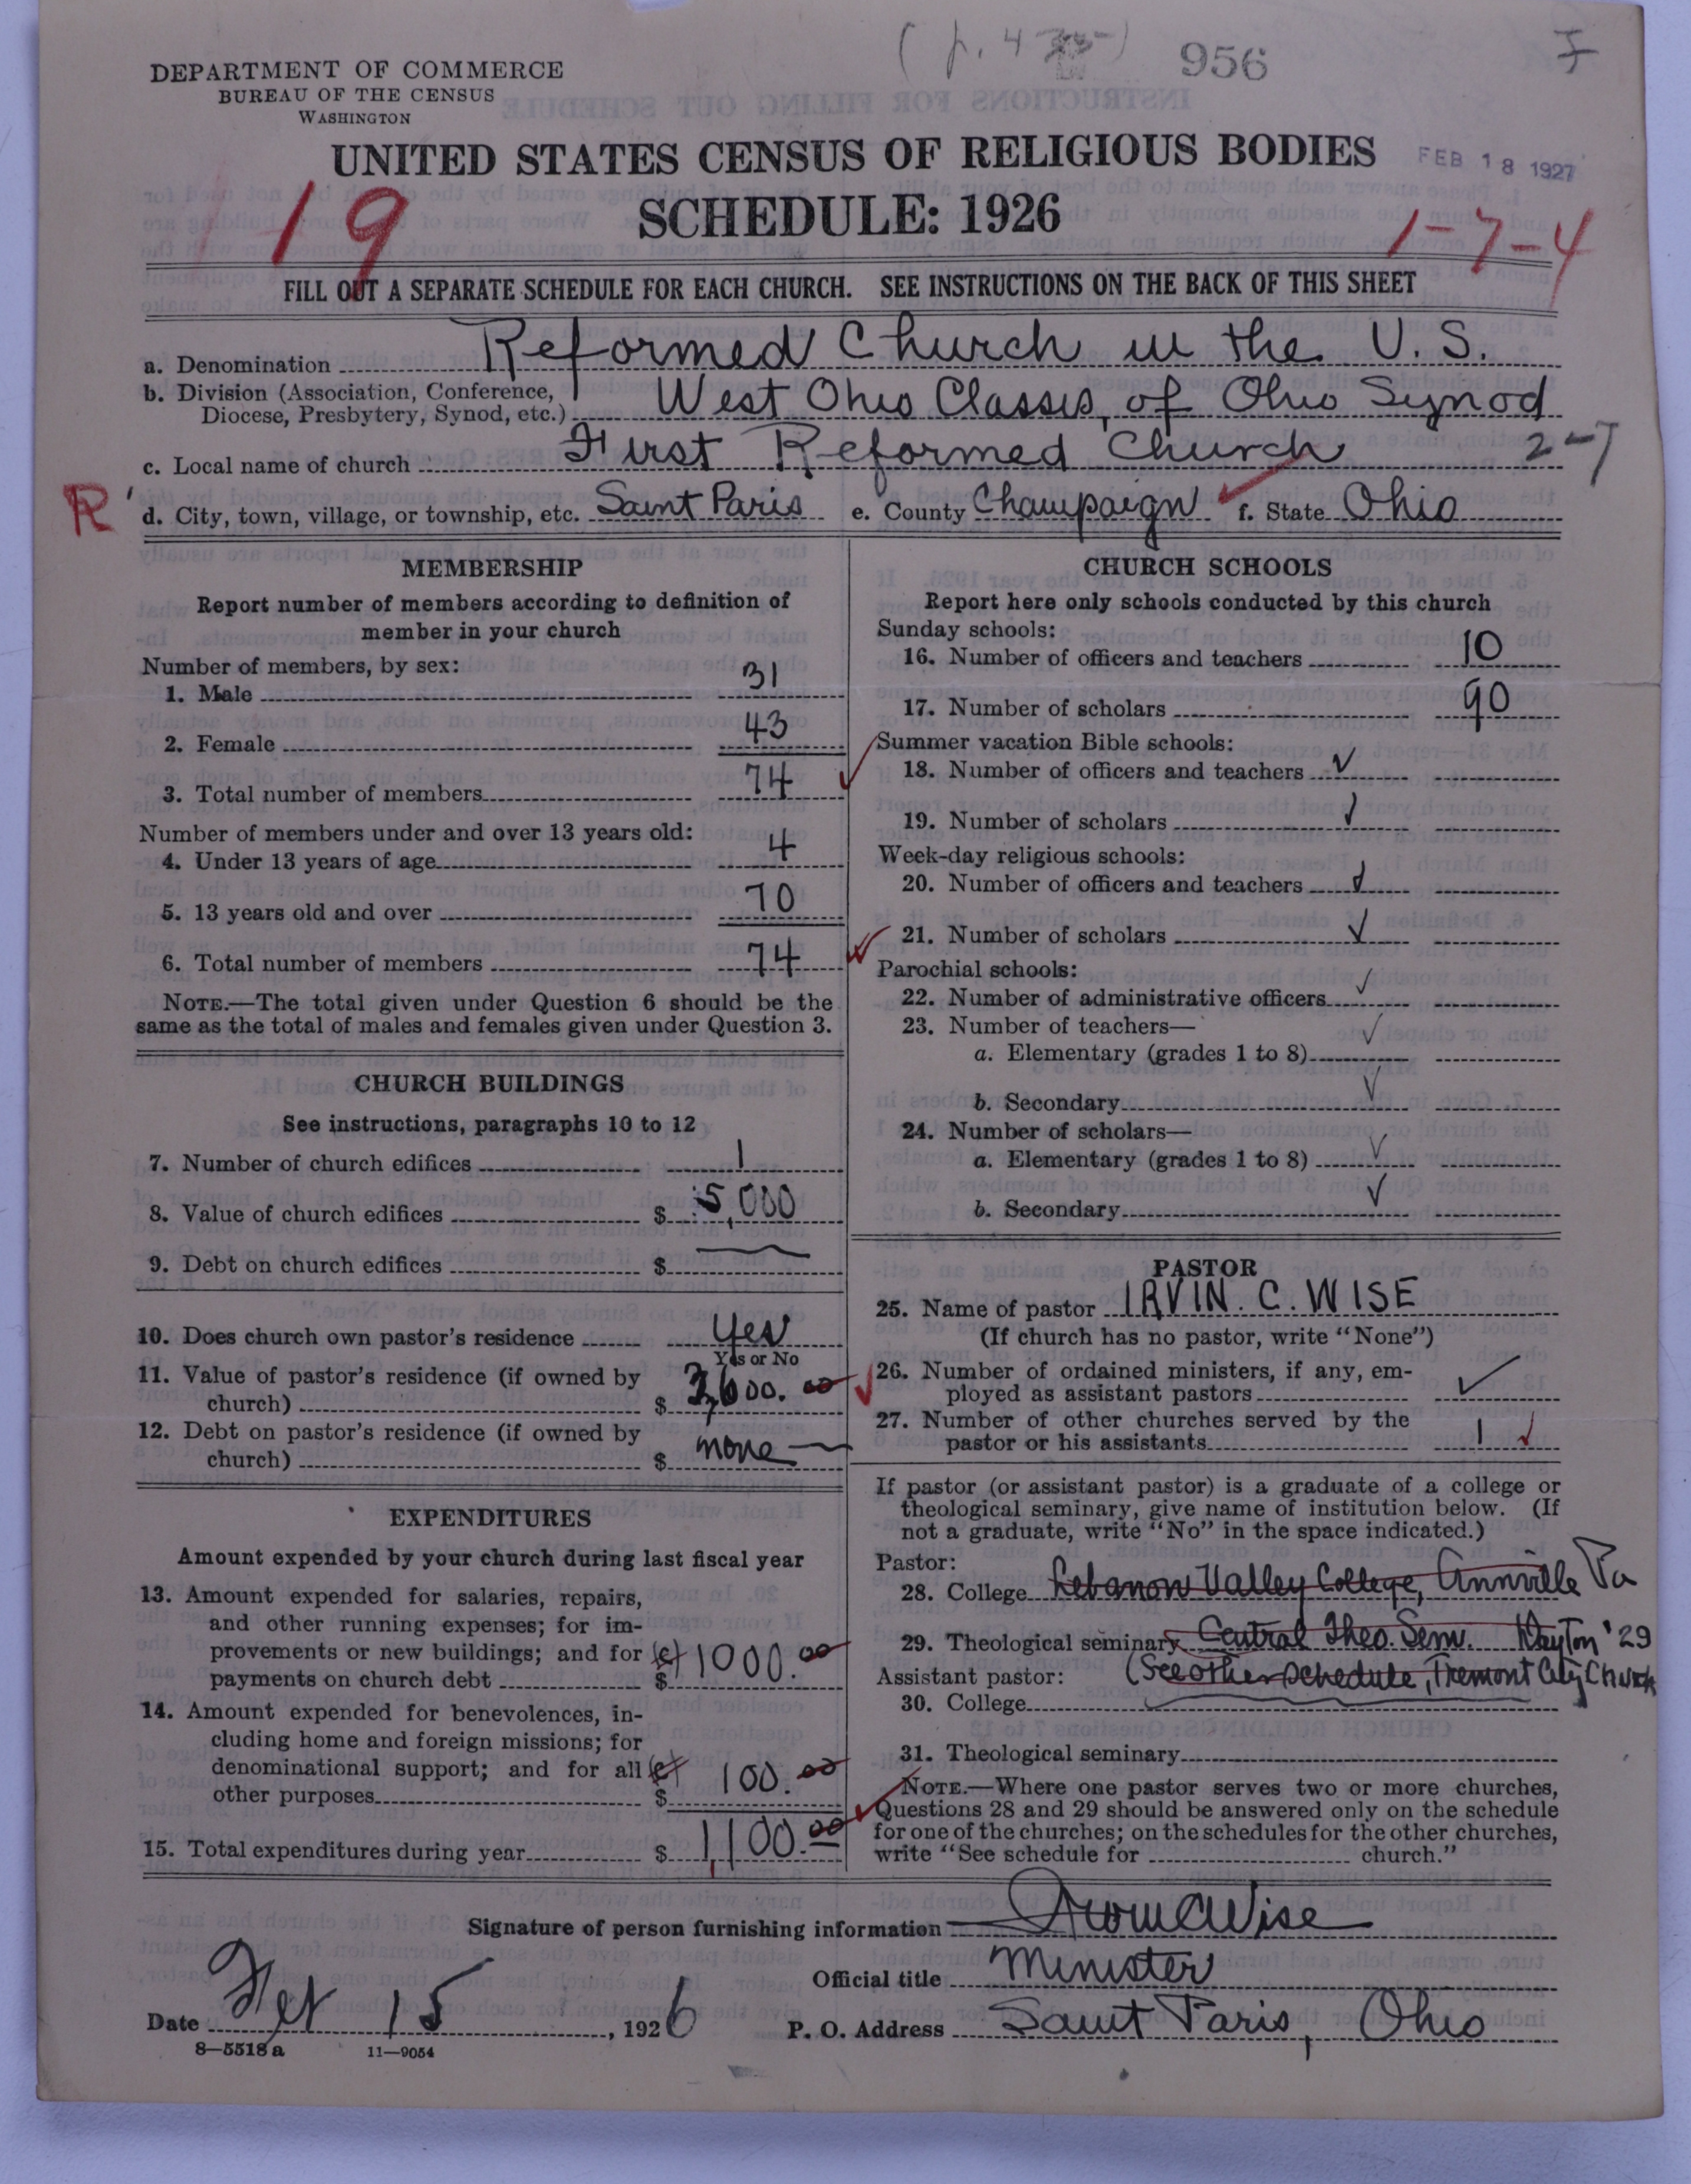 956
DEPARTMENT OF COMMERCE
BUREAU OF THE CENSUS
WASHINGTON
UNITED STATES CENSUS OF RELIGIOUS BODIES
FEB 18 1927
SCHEDULE: 1926
19
1-7-4
FILL OUT A SEPARATE SCHEDULE FOR EACH CHURCH. SEE INSTRUCTIONS ON THE BACK OF THIS SHEET
a. Denomination Reformed Church in the U. S.
b. Division (Association, Conference,
Diocese, Presbytery, Synod, etc.) West Ohio Classis, of Ohio Synod
c. Local name of church First Reformed Church 2-7
R d. City, town, village, or township, etc. Saint Paris e. County Champaign f. State Ohio
MEMBERSHIP
Report number of members according to definition of
member in your church
Number of members, by sex:
1. Male 31
2. Female 43
3. Total number of members 74
Number of members under and over 13 years old:
4. Under 13 years of age 4
5. 13 years old and over 70
6. Total number of members 74
NOTE.—The total given under Question 6 should be the
same as the total of males and females given under Question 3.
CHURCH BUILDINGS
See instructions, paragraphs 10 to 12
7. Number of church edifices 1
8. Value of church edifices $ 5,000
9. Debt on church edifices $
10. Does church own pastor's residence Yes
Yes or No
11. Value of pastor's residence (if owned by
church) $
12. Debt on pastor's residence (if owned by
church) $ none
EXPENDITURES
Amount expended by your church during last fiscal year
13. Amount expended for salaries, repairs,
and other running expenses; for im-
provements or new buildings; and for
payments on church debt $ (c) 1000.00
14. Amount expended for benevolences, in-
cluding home and foreign missions; for
denominational support; and for all
other purposes $ (c) 100.00
15. Total expenditures during year $ 1,100.00
CHURCH SCHOOLS
Report here only schools conducted by this church
Sunday schools:
16. Number of officers and teachers 10
17. Number of scholars 90
Summer vacation Bible schools:
18. Number of officers and teachers ✓
19. Number of scholars ✓
Week-day religious schools:
20. Number of officers and teachers ✓
21. Number of scholars ✓
Parochial schools:
22. Number of administrative officers ✓
23. Number of teachers—
a. Elementary (grades 1 to 8) ✓
b. Secondary ✓
24. Number of scholars—
a. Elementary (grades 1 to 8) ✓
b. Secondary ✓
PASTOR
25. Name of pastor IRVIN. C. WISE
(If church has no pastor, write "None")
26. Number of ordained ministers, if any, em-
ployed as assistant pastors ✓
27. Number of other churches served by the
pastor or his assistants 1 ✓
If pastor (or assistant pastor) is a graduate of a college or
theological seminary, give name of institution below. (If
not a graduate, write "No" in the space indicated.)
Pastor:
28. College Lebanon Valley College, Annville Pa
29. Theological seminary Central Theo. Sem. Dayton '29
Assistant pastor: (See other schedule, Tremont City Church
30. College
31. Theological seminary
NOTE.—Where one pastor serves two or more churches,
Questions 28 and 29 should be answered only on the schedule
for one of the churches; on the schedules for the other churches,
write "See schedule for church."
Signature of person furnishing information Irvin C Wise
Official title Minister
Date Feb 15, 1926
P. O. Address Saint Paris, Ohio
8—5518 a 11—9054